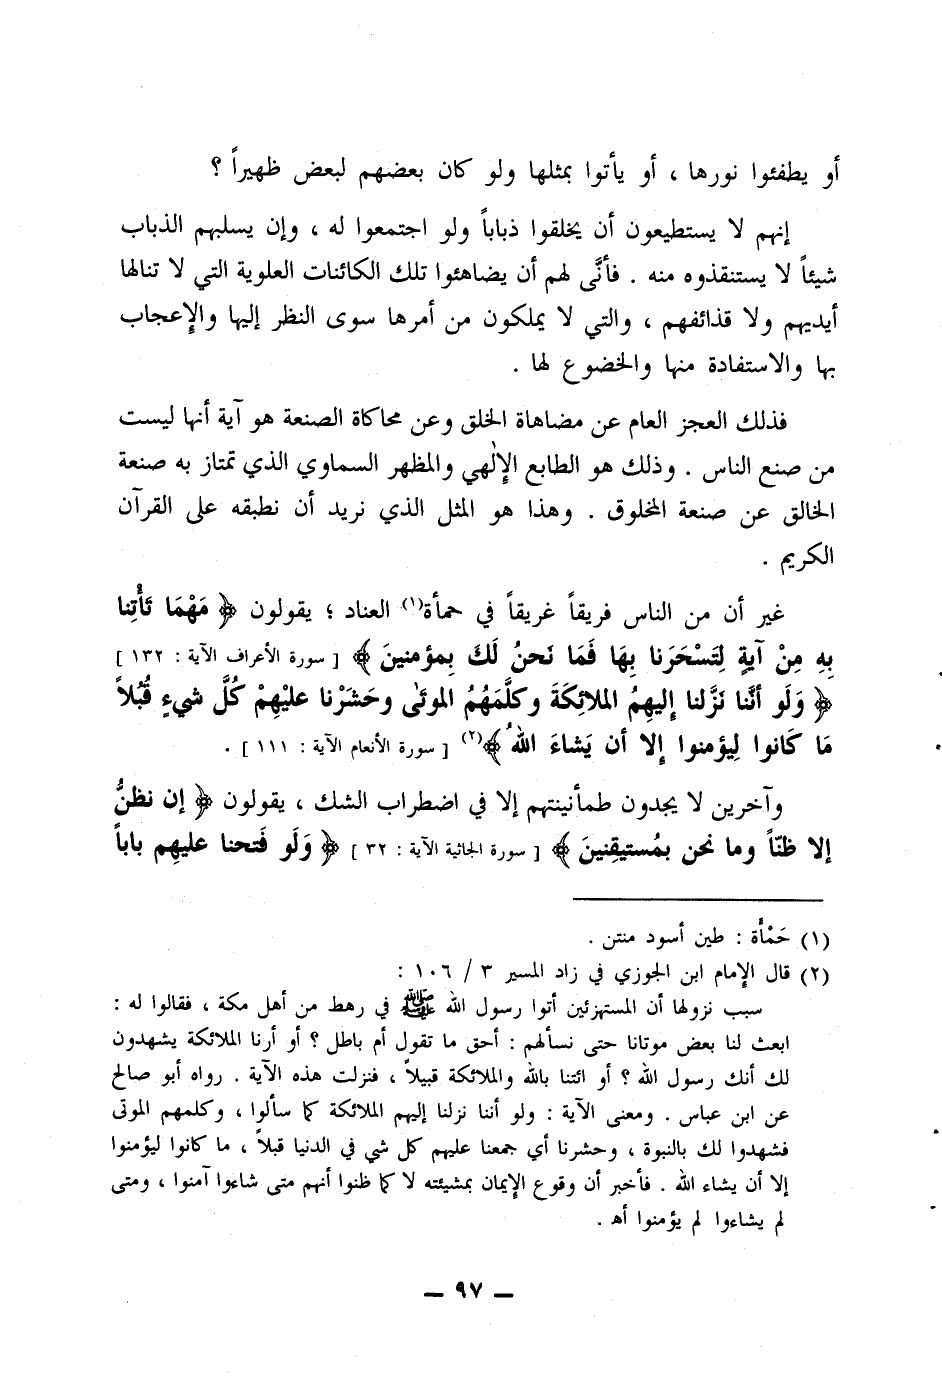 أو يطفئوا نورها ، أو يأتوا بمثلها ولو كان بعضهم لبعض ظهيراً ؟
إنهم لا يستطيعون أن يخلقوا ذباباً ولو اجتمعوا له ، وإن يسلبهم الذباب
شيئاً لا يستنقذوه منه . فأنَّى لهم أن يضاهئوا تلك الكائنات العلوية التي لا تنالها
أيديهم ولا قذائفهم ، والتي لا يملكون من أمرها سوى النظر إليها والإعجاب
بها والاستفادة منها والخضوع لها .
فذلك العجز العام عن مضاهاة الخلق وعن محاكاة الصنعة هو آية أنها ليست
من صنع الناس . وذلك هو الطابع الإلٰهي والمظهر السماوي الذي تمتاز به صنعة
الخالق عن صنعة المخلوق . وهذا هو المثل الذي نريد أن نطبقه على القرآن
الكريم .
غير أن من الناس فريقاً غريقاً في حمأة(١) العناد ؛ يقولون ﴿ مَهْمَا تَأْتِنا
بِهِ مِنْ آيةٍ لِتَسْحَرَنا بِهَا فَمَا نَحنُ لَكَ بِمؤمنينَ ﴾ [ سورة الأعراف الآية : ١٣٢ ]
﴿ وَلَو أنَّنا نَزَّلنا إليهِمُ الملائكَةَ وكلَّمَهُمُ الموتَى وحَشَرْنا عليْهِمْ كُلَّ شيءٍ قُبُلاً
مَا كَانوا لِيؤمنوا إلا أن يَشاءَ اللهُ ﴾(٢) [ سورة الأنعام الآية : ١١١ ] .
وآخرين لا يجدون طمأنينتهم إلا في اضطراب الشك ، يقولون ﴿ إن نظنُّ
إلا ظنّاً وما نحن بمُستيقِنينَ ﴾ [ سورة الجاثية الآية : ٣٢ ] ﴿ وَلَو فَتحنا عليهِم باباً
(١) حَمْأَة : طين أسود منتن .
(٢) قال الإمام ابن الجوزي في زاد المسير ٣ / ١٠٦ :
سبب نزولها أن المستهزئين أتوا رسول الله ﷺ في رهط من أهل مكة ، فقالوا له :
ابعث لنا بعض موتانا حتى نسألهم : أحق ما تقول أم باطل ؟ أو أرنا الملائكة يشهدون
لك أنك رسول الله ؟ أو ائتنا بالله والملائكة قبيلاً ، فنزلت هذه الآية . رواه أبو صالح
عن ابن عباس . ومعنى الآية : ولو أننا نزلنا إليهم الملائكة كما سألوا ، وكلمهم الموتى
فشهدوا لك بالنبوة ، وحشرنا أي جمعنا عليهم كل شي في الدنيا قبلاً ، ما كانوا ليؤمنوا
إلا أن يشاء الله . فأخبر أن وقوع الإيمان بمشيئته لا كما ظنوا أنهم متى شاءوا آمنوا ، ومتى
لم يشاءوا لم يؤمنوا أهـ .
— ٩٧ —